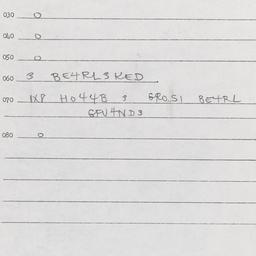 030 0
040 0
050 0
060 3 BE4RL3KED
070 1XP HO44B 3 GROSI BE4RL
GFU4ND3
080 0